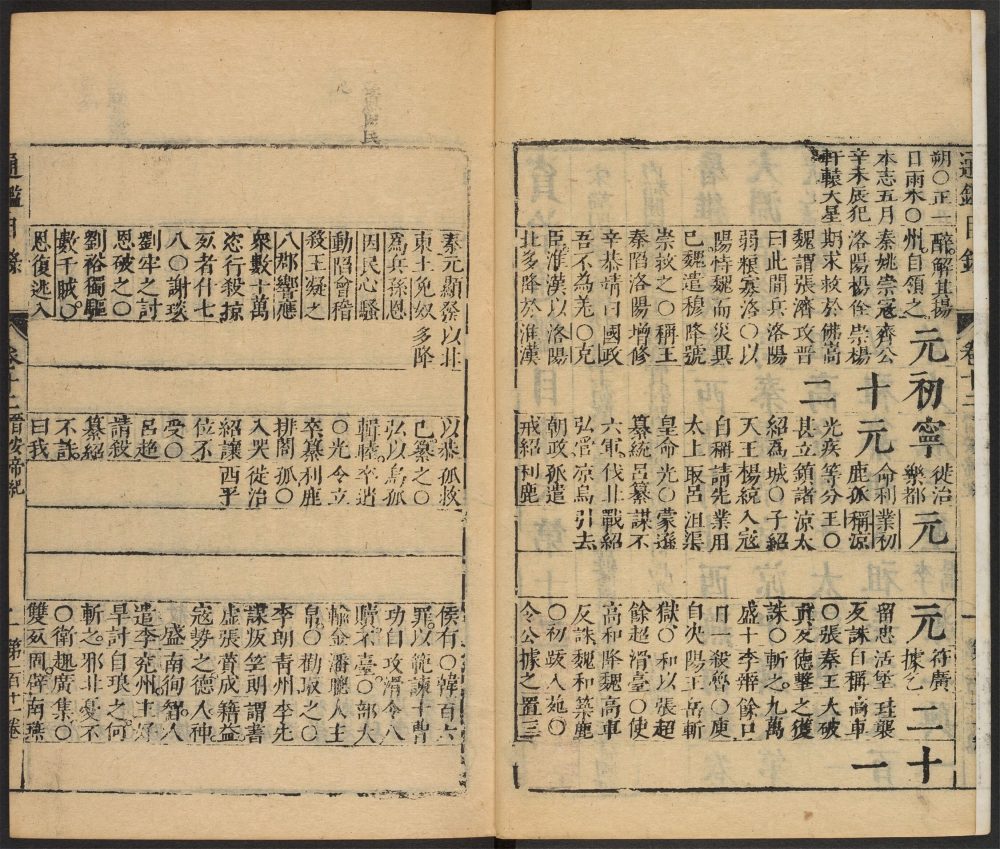 通鑑目錄
卷十二
朔〇正一醉解其揚
日雨木〇州自領之
本志五月秦姚崇寇齊公
辛未辰犯洛陽楊佺崇楊
軒轅大星期求救於佛嵩
魏謂張濟攻晉
曰此間兵洛陽
弱糧寡洛〇以
陽恃魏而災異
已魏遣穆降號
崇救之〇稱王
秦陷洛陽增修
辛恭靖曰國政
吾不為羌〇克
臣淮漢以洛陽
北多降於淮漢
元初寧
十元
二
徙治
樂都
命利業初
鹿孤稱涼
光疾等分王〇
甚立鎮諸涼太
紹為城〇子紹
天王楊統入寇
自稱請先業用
太上取呂沮渠
皇命光〇蒙遜
纂統呂纂謀不
六軍伐北戰紹
弘管涼烏引去
朝政孤遣
戒紹利鹿
元
元二十
一
符廣
據乞
留忠活堡珪襲
友誅自稱高車
〇張秦王大破
真友德擊之獲
誅〇斬之九萬
盛十李辯餘口
日一殺魯〇庾
自次陽王岳斬
獄〇和以張超
餘超滑臺〇使
高和降魏高車
反誅魏和築鹿
〇初跋入苑〇
令公據之置三
通鑑目錄
卷十二晉安帝紀
一第百十一卷
秦元顯發以北
東土免奴多降
為兵孫恩
因民心騷
動陷會稽
殺王凝之
八郡響應
衆數十萬
恣行殺掠
死者什七
八〇謝琰
劉牢之討
恩破之〇
劉裕獨驅
數千賊〇
恩復逃入
以恭孤救
已纂之〇
弘以烏孤
輯睦卒逍
〇光令立
卒纂利鹿
排閤孤〇
入哭徙治
紹讓西平
位不
受〇
呂超
請殺
纂紹
不許
曰我
侯有〇韓百六
罪以範諫十曹
功自攻滑令八
贖不臺〇部大
輸金潘聰人主
帛〇勸取之〇
李朗青州李先
謀叛笠朗謂書
虛張菅成籍益
寇勢之德人神
盛南徇智
遣李兗州主好
早討自琅之何
斬之邪北憂不
〇衛趣廣集〇
雙死固辟南燕